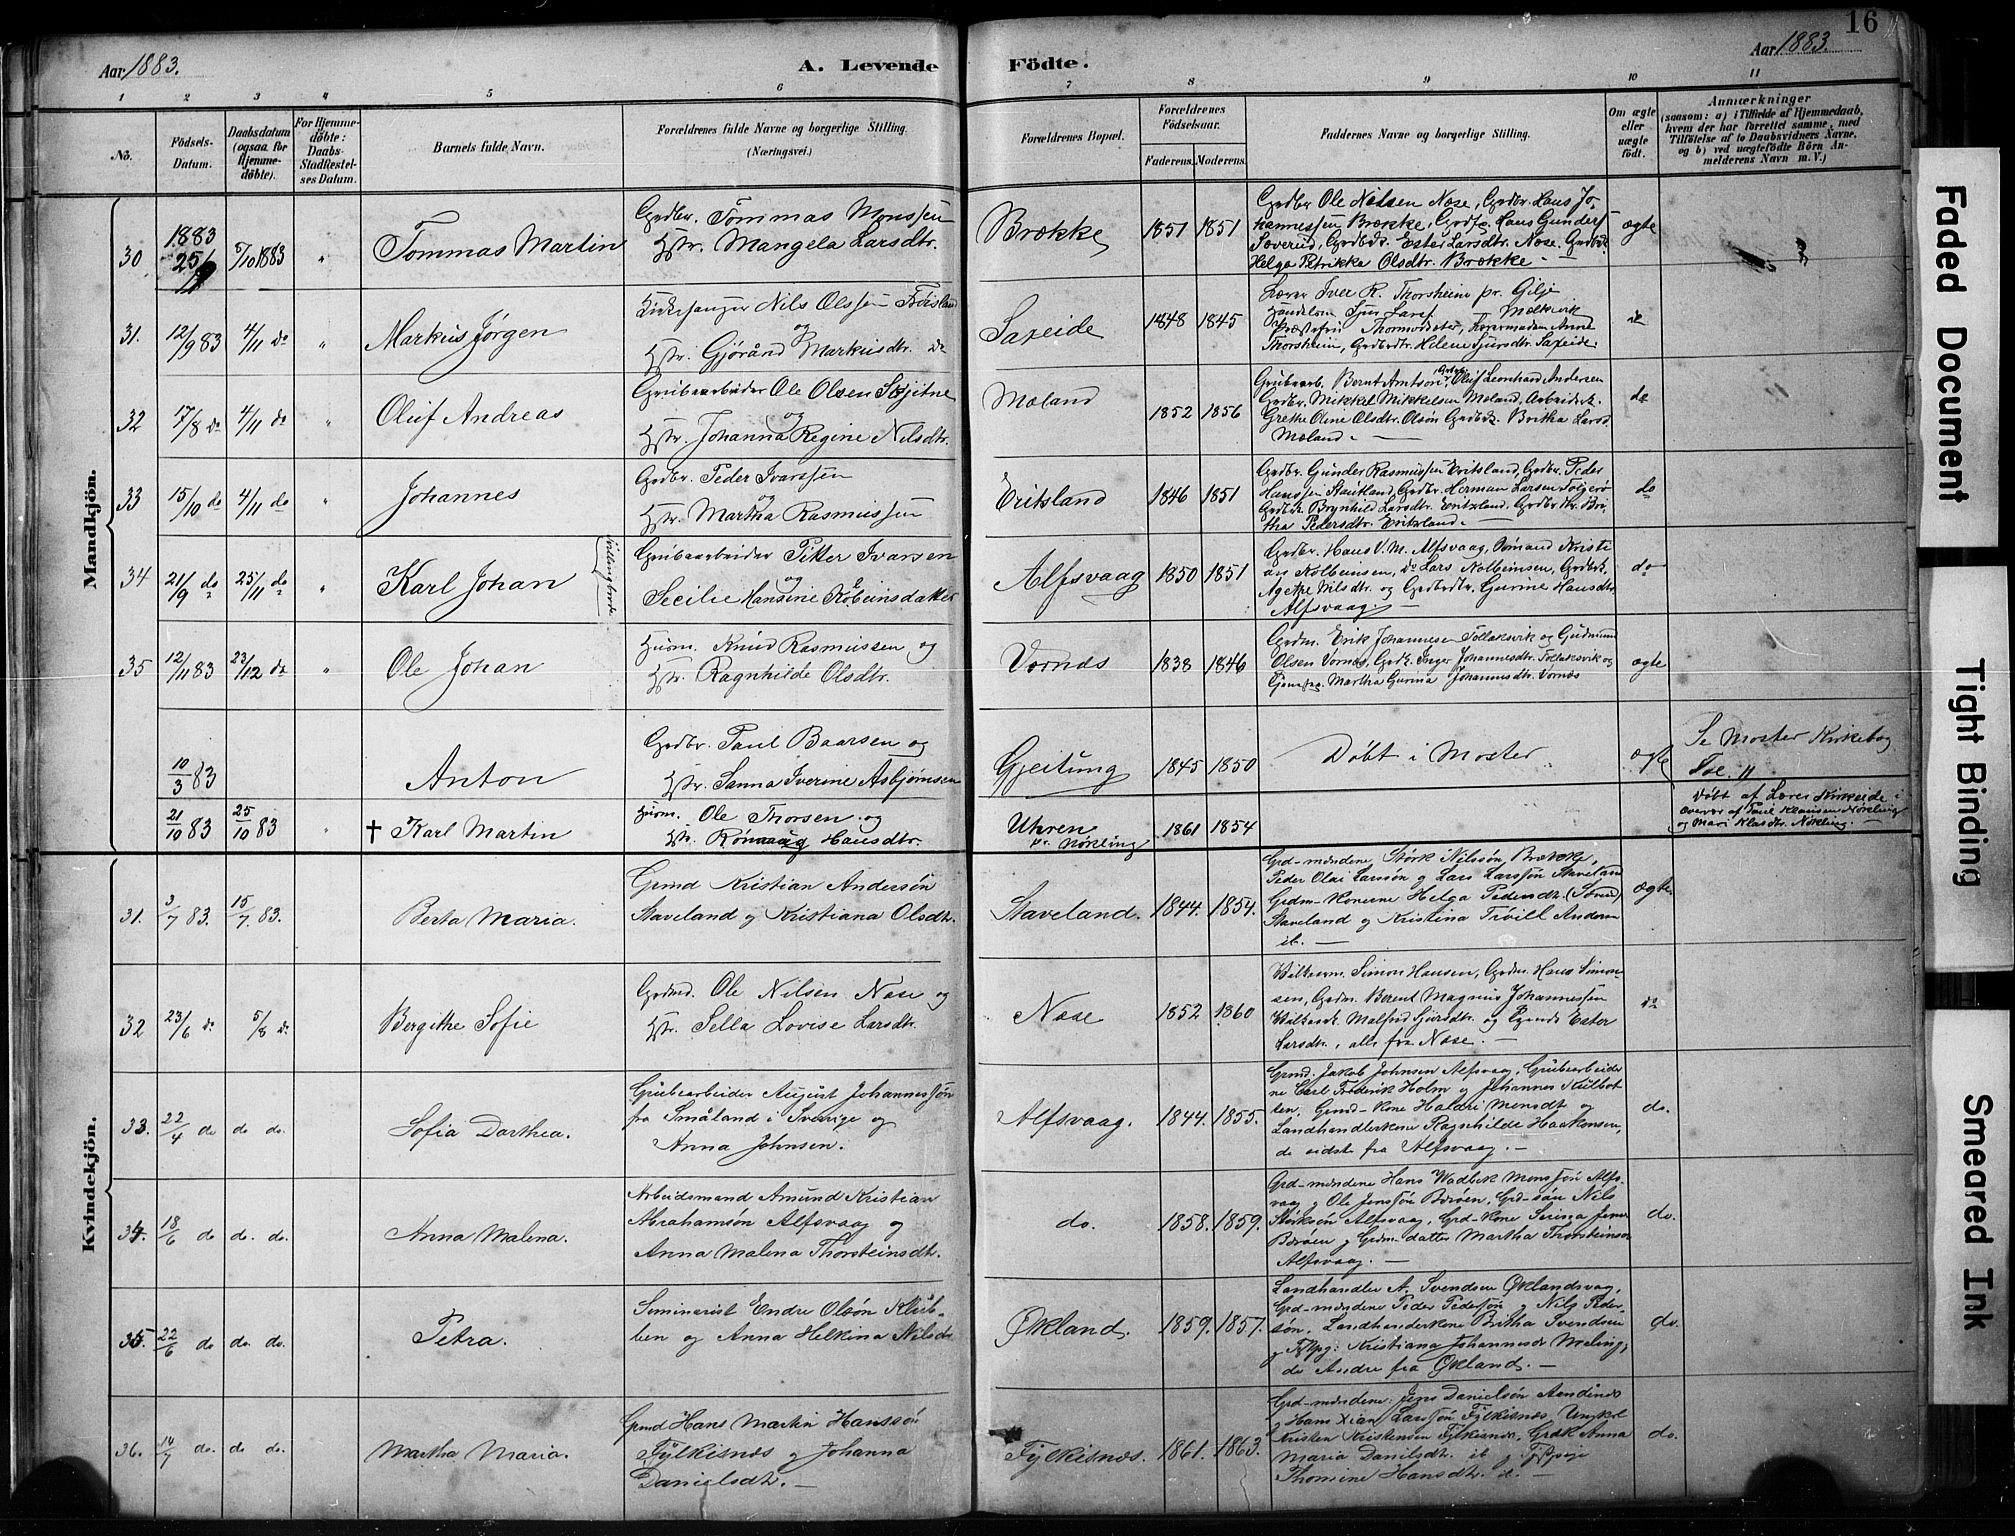 16
Aar 1883.
A. Levende Födte.
Aar 1883.
1 2 3 4 5 6 7 8 9 10 11
No.
Födsels-Datum.
Daabsdatum (ogsaa for Hjemmedöbte).
For Hjemmedöbte: Daabs-Stadfæstelses Datum.
Barnets fulde Navn.
Forældrenes fulde Navne og borgerlige Stilling.
(Næringsvei.)
Forældrenes Bopæl.
Forældrenes Födselsaar.
Faderens. Moderens.
Faddernes Navne og borgerlige Stilling.
Om ægte eller uægte födt.
Anmærkninger
(saasom: a) i Tilfælde af Hjemmedaab,
hvem der har forrettet samme, med
Tilföielse af to Daabsvidners Navne,
og b) ved uægtefödte Börn Anmelderens Navn m. V.)
Mandkjön.
30 1883 25/9 7/10 1883 " Tommas Martin
Grdbr. Tommas Monssen
Hstr. Mangela Larsdtr.
Brække 1851 1851
Grdbr Ole Nilsen Nose, Grdbr. Hans Jo-
hannessen Brække, Hans Gunders
Søvereid, Ester Larsdtr. Nose.
Helga Petrikka Olsdtr. Brække -
ægte
31. 12/9 83 4/11 do " Markus Jørgen
Kirkesanger Nils Olssen
og
Hstr. Gjøránd Markusdtr. do
Saxeide 1848 1845
Lærer Iver R. Thorsheim pr. Gilje
Thorsheim, Helene Sjursdtr. Saxeide.
32 17/8 do 4/11 do " Oluf Andreas
Grubearbeider Ole Olsen Skjitne
og
Hstr. Johanna Regine Nilsdtr.
Moland 1852 1856
Grubearb. Bernt Amtson, Oluf Leonhard Andersen
Grdbr. Mikkel Mikkelsen Moland, Arbeidsk.
Grethe Oline Olsdtr. Olsón Britha Larsd
Moland. -
do
33 15/10 do 4/11 do " Johannes
Grdbr. Peder Ivarssen
og
Hstr. Martha Rasmussen
Eritsland 1846 1851
Grdbr. Gunder Rasmussen Eritsland, Grdbr. Peder
Hanssen Stautland, Grdbr. Herman Larsen Folgerø
Brynhild Larsdtr. Eritsland, Bri-
tha Pedersdtr. Eritsland. -
do
34 21/9 do 25/11 do " Karl Johan
Tvillingfødt
Grubearbeider Pitter Ivarsen
og
Secilie Hansine Kolbeinsdatter
Alfsvaag 1850 1851
Grdbr. Hans V. M. Alfsvaag, Sømand Kristi
an Kolbeinsen, do Lars Kolbeinsen,
Agethe Nilsdtr. og Gurine Hansdtr.
Alfsvaag. -
do
35 12/11 83 23/12 do " Ole Johan
Husm. Knud Rasmussen og
Hstr. Ragnhilde Olsdtr.
Vornæs 1838 1846
Grdm. Erik Johannesen Tollaksvik og Gudmund
Olsen Vornæs, Inger Johannesdtr. Tollaksvik og
Martha Gurina Johannesdtr. Vornæs
ægte
10/3 83 Anton
Grdbr. Paul Baarsen og
Hstr. Sanna Iverine Asbjørnsen
Gjeitung 1845 1850
Døbt i Moster.
ægte
Se Moster Kirkebog
Fol. 11
21/10 83 25/10 83 " † Karl Martin
Husm. Ole Thorsen og
Hstr. Rønnaug Hansdtr.
Uhren
pr. Nøkling
1861 1854
Døbt af Lærer Kirkeide i
Overvær af Paul Klausen Nøkling
og Mari Klasdtr. Nøkling. -
Kvindekjön.
31. 3/7 83. 15/7 83. Berta Maria.
Grmd Kristian Andersón
Staveland og Kristiana Olsdtr.
Staveland. 1844. 1854.
Grd-mændene Størk Nilssón, Brække,
Peder Olai Larsón og Lars Larssón Staveland
Grdm-Konerne Helga Pedersdtr. (Søreid)
Staveland og Kristina Andersen
ib. -
ægte
32 23/6 do 5/8 do Bergithe Sofie
Grdmd. Ole Nilsen Nose og
Hstr. Sella Lovise Larsdtr.
Nose 1852 1860
Simon Hansen, Grdm. Hans Simon-
sen, Grdm. Berent Magnus Johannessen
Malfrid Sjursdtr. og Ester
Larsdtr., alle fra Nose. -
do
33. 22/4 do do do. Sofia Dorthea.
Grubearbeider August Johannessón
fra Småland i Sverige og
Anna Johnsen.
Alfsvaag. 1844. 1855.
Grmd. Jakob Johnsen Alfsvaag, Grubearbeider
ne Carl Frederik Holm og Johannes
Grmd-Kone Haldri Monsdtr og
Landhandlerkone Ragnhilde Haakonsen,
de sidste fra Alfsvaag. -
do.
34. 18/6 do do. do. Anna Malena.
Arbeidsmand Amund Kristian
Abrahamsón Alfsvaag og
Anna Malena Thorsteinsdtr.
do. 1858. 1859.
Grd-mændene Hans Wadbek Monssón Alfs-
vaag og Ole Jenssón Børøen, Grd-søn Nils
Størksón Alfsvaag, Grd-Kone Serina Jensen
Børøen og Grdm-datter Martha Thorsteinsen
Alfsvaag. -
do.
35. 22/6 do do do. Petra.
Seminarist Endre Olsón Klub-
ben og Anna Helkina Nilsdtr
Økland. 1859. 1857.
Landhandler A. Svendsen Øklandsvag,
Grd-mændene Peder Pedersón og Nils Peder-
són, Landhandlerkone Britha Svendsen
og Kristiana Johannesdr Meling,
de Andre fra Økland. -
do.
36. 14/7 do. do do. Martha Maria.
Grmd Hans Martin Hanssón
Fylkesnæs og Johanna
Danielsdtr. -
Fylkesnæs. 1861. 1863.
Grd-mændene Jens Danielsón
og Hans Xian Larssón Fylkesnæs, Ungkarl
Kristen Kristensen Fylkesnæs, Grdk Anna
Maria Danielsdtr. ib. og
Thomine Hansdtr. -
do.
Faded Document
Tight Binding
Smeared Ink